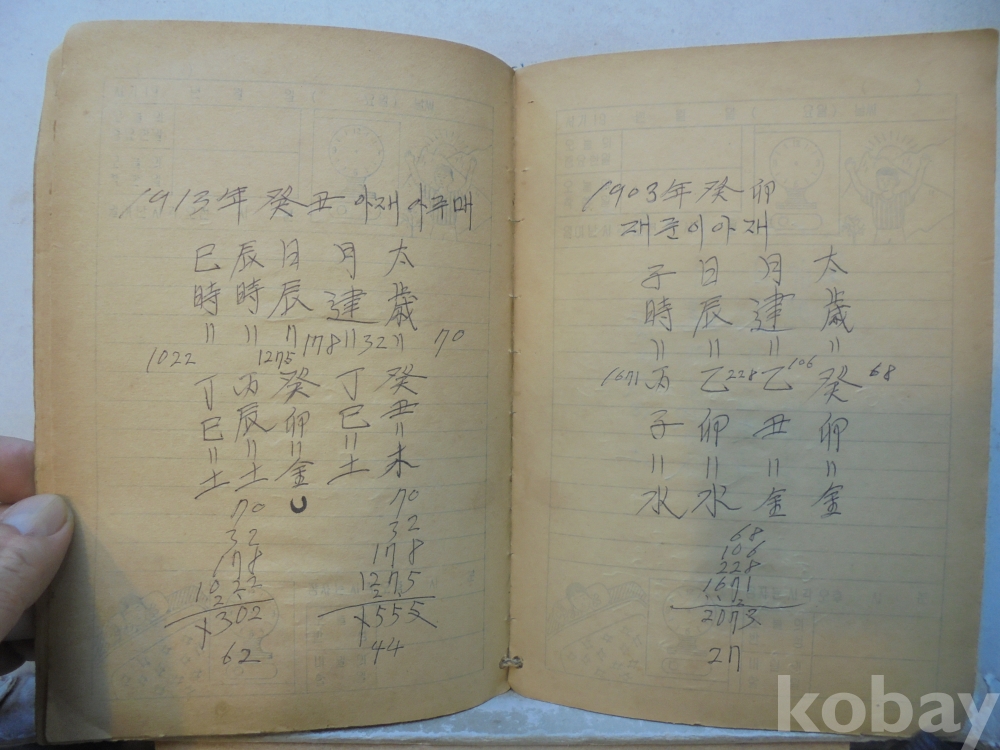 1913年 癸丑 아재 아주매
巳 辰 日 月 太
時 時 辰 建 歲
〃 〃 〃 178 〃 32 〃 70
1022 1275
丁 丙 癸 丁 癸
巳 辰 卯 巳 丑
〃 〃 〃 〃 〃
土 土 金 土 木
70 70
32 32
178 178
1022 1275
1302 1555
62 44
1903年 癸卯
재준이아재
子 日 月 太
時 辰 建 歲
〃 〃 〃 〃
1671 丙 乙 228 乙 106 癸 68
子 卯 丑 卯
〃 〃 〃 〃
水 水 金 金
68
106
228
1671
2073
27
kobay